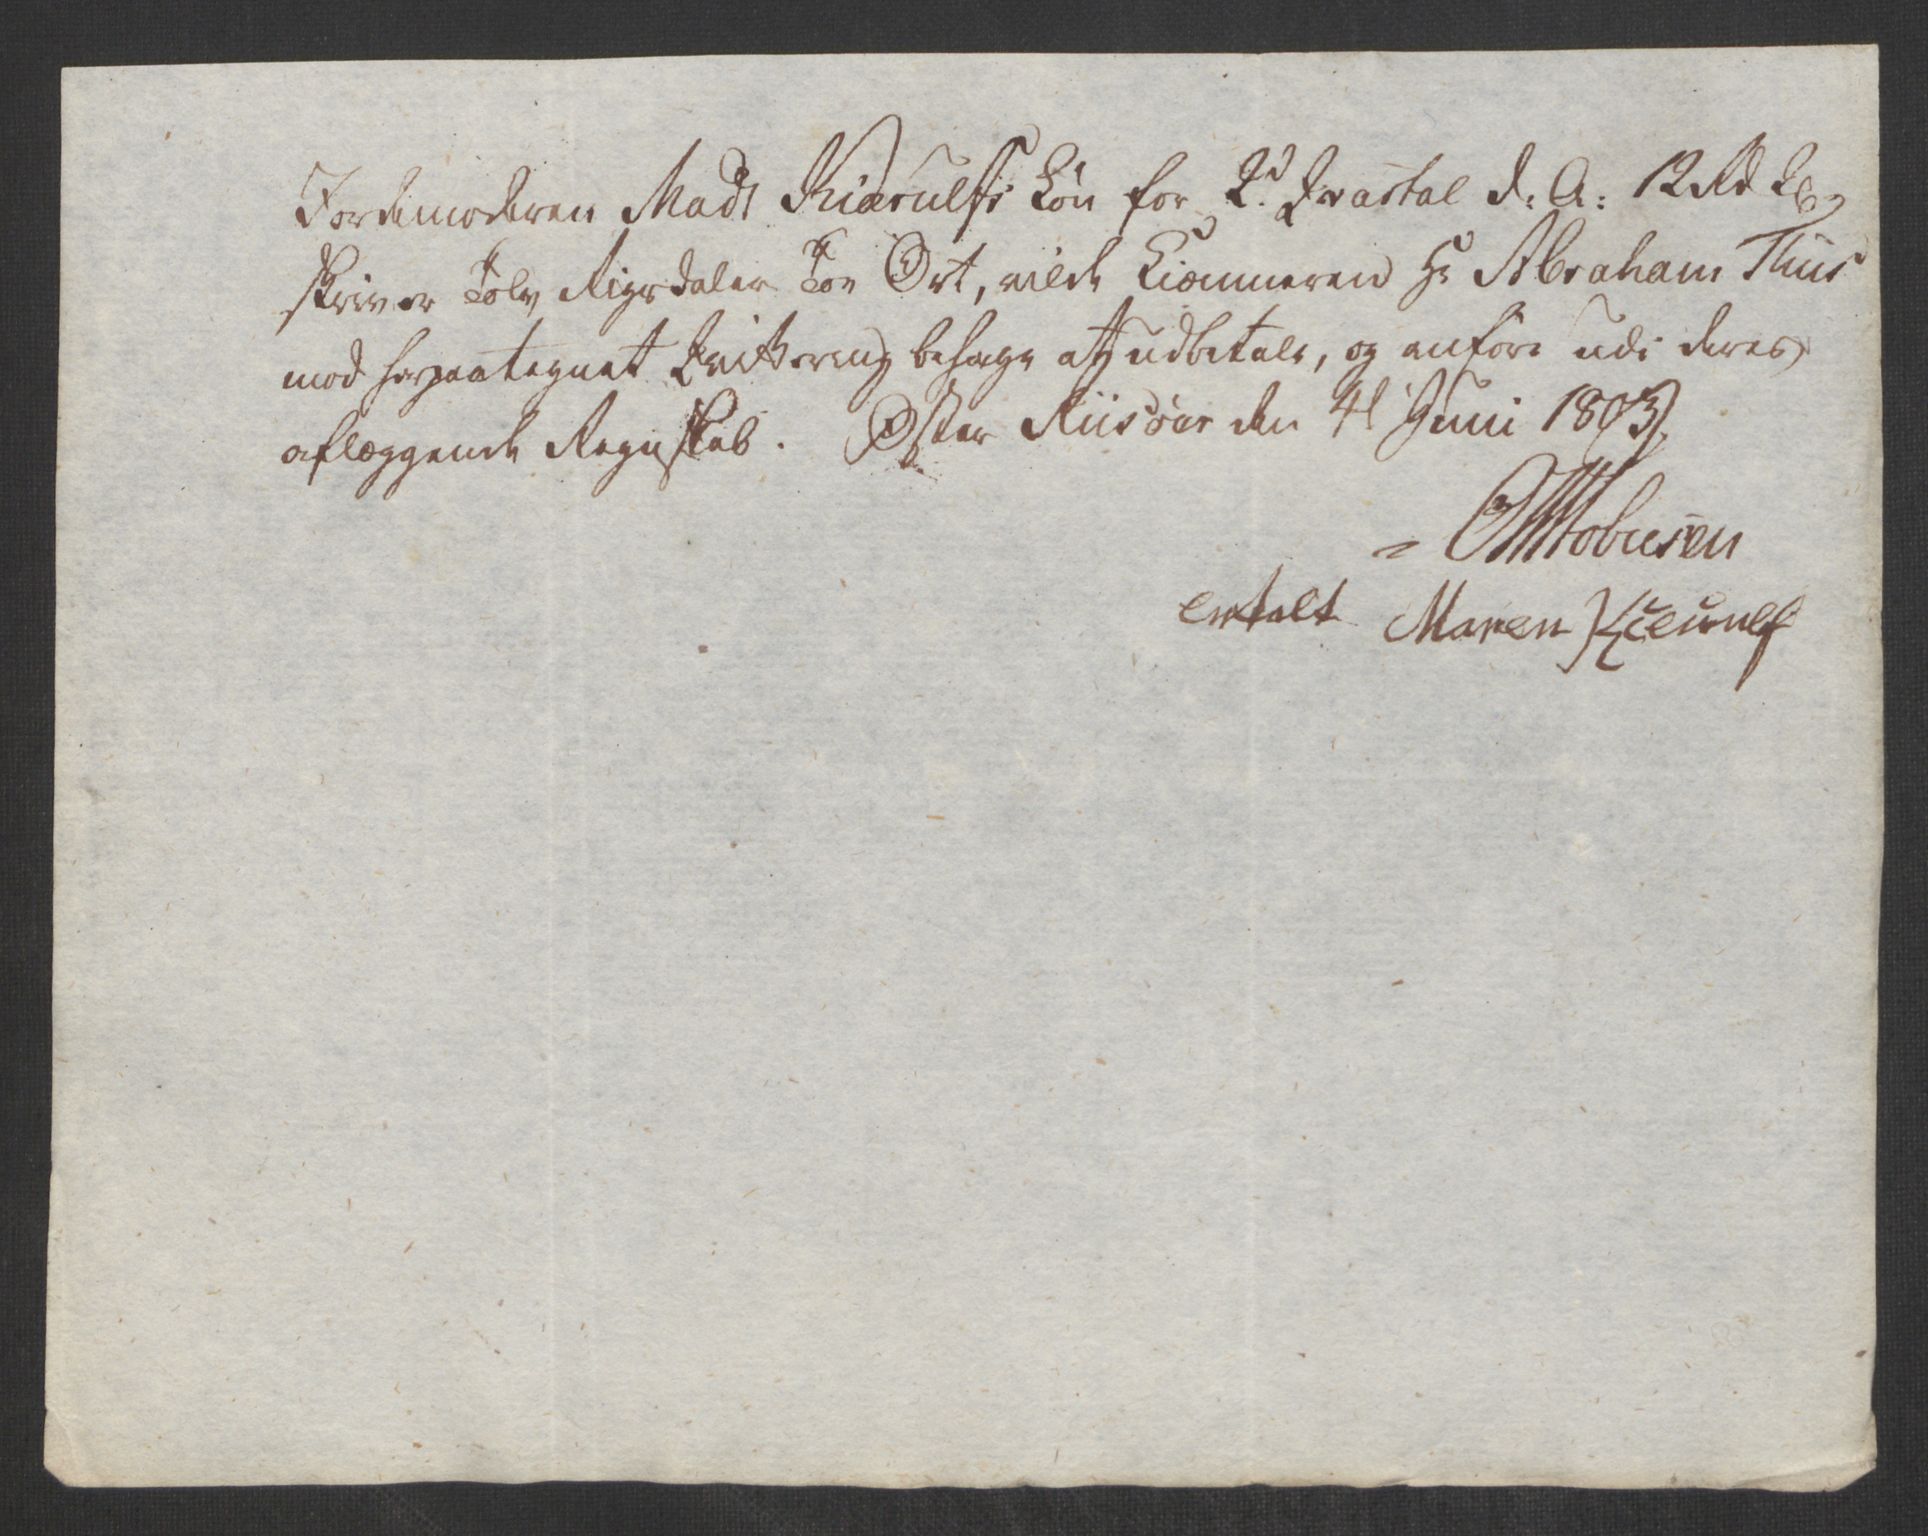 Jordemoderen Mads Kiærulfs Løn for 2d Qvartal d: A: 12 Rd
skriver Tolv Rigsdaler Toe Ort, vilde Kiæmneren Hr Abraham Thiis
mod herpaategnet Qvittering behage at udbetale, og anføre udi deres
aflæggende Regnskab. Øster Riisöer den 4d Juni 1803
Tobiesen
Maren Kierulf